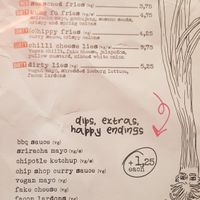 seasoned fries (vg/v) 3,75
kung fu fries (vg/v) 4,75
sriracha mayo, gomashio, sesame seeds,
crispy and spring onions
chippy fries (vg/v) 4,25
curry sauce, crispy onions
chilli cheese lies (vg/v) 5,75
vegan chilli, fake cheese, jalapeños,
yellow mustard, minced white onion
dirty lies 5,25
vegan mayo, shredded iceberg lettuce,
facon lardons
dips, extras,
happy endings
bbq sauce (vg)
sriracha mayo (vg/v)
chipotle ketchup (vg/v)
chip shop curry sauce (vg)
vegan mayo (vg)
fake cheese (vg)
facon lardons (vg)
+1,25
each